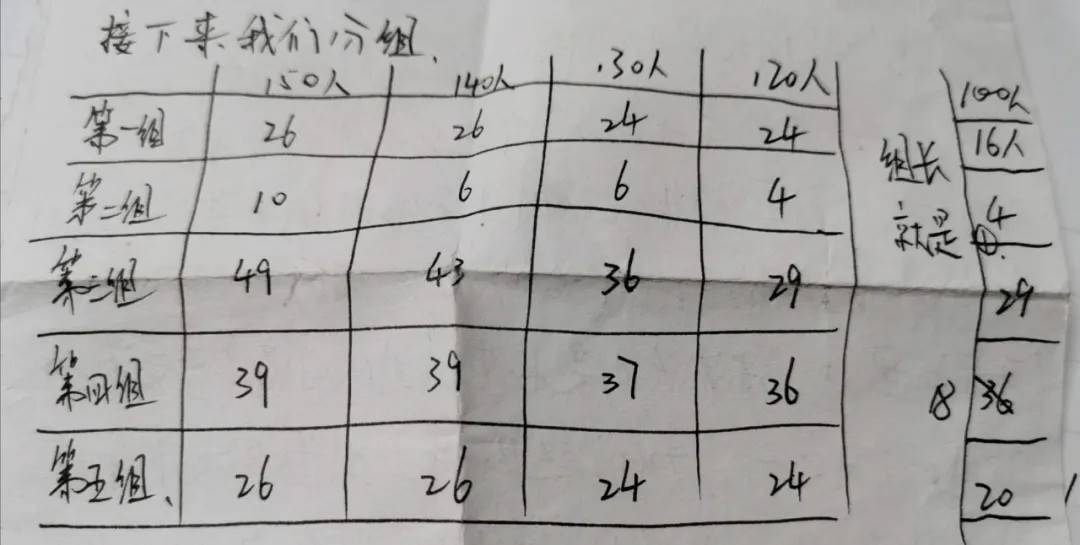 接下来我们分组、
150人 140人 130人 120人 100人
第一组 26 26 24 24 组长 16人
第二组 10 6 6 4 就是 4
第三组 49 43 36 29 29
第四组 39 39 37 36 18 36
第五组、 26 26 24 24 20